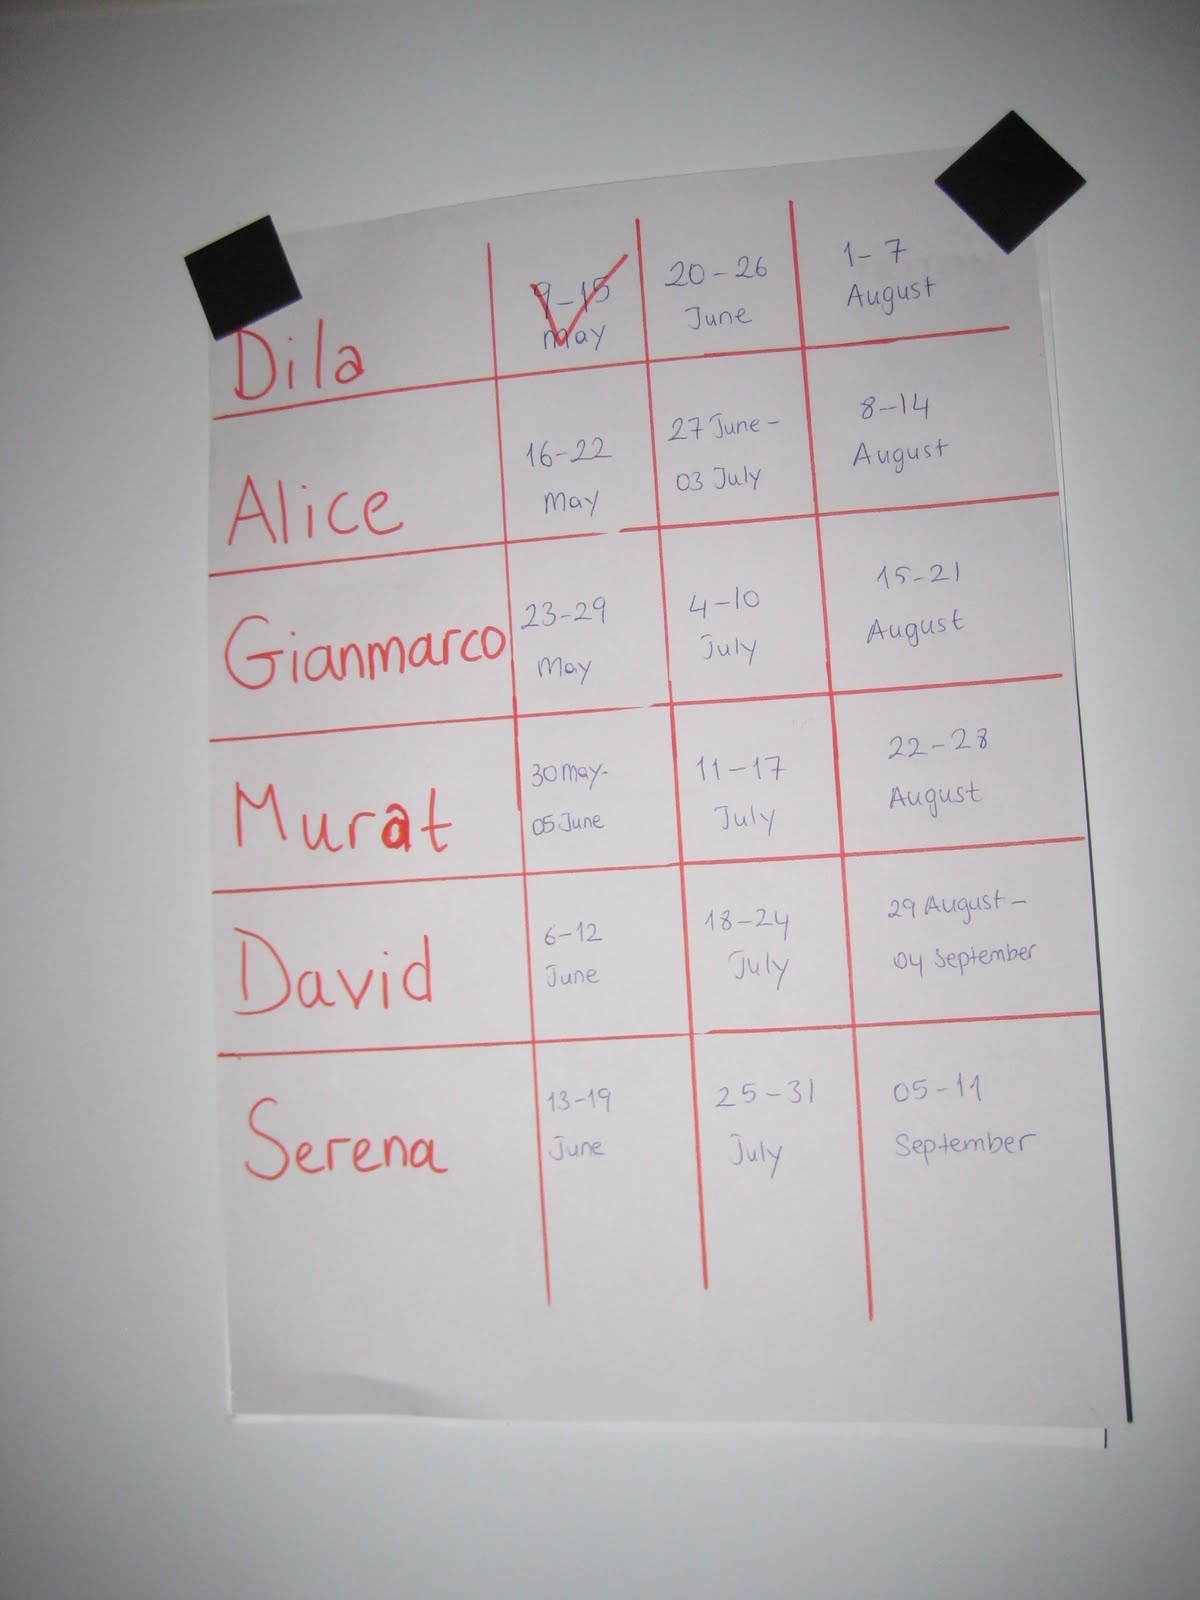 Dila
9-15
May
20-26
June
1-7
August
Alice
16-22
May
27 June-
03 July
8-14
August
Gianmarco
23-29
May
4-10
July
15-21
August
Murat
30 May-
05 June
11-17
July
22-28
August
David
6-12
June
18-24
July
29 August-
04 September
Serena
13-19
June
25-31
July
05-11
September